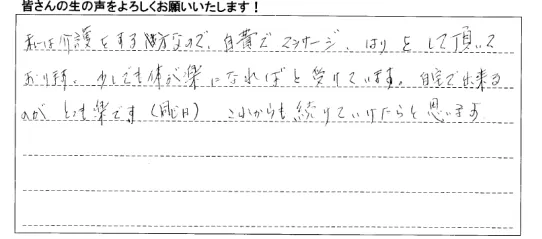 皆さんの生の声をよろしくお願いいたします！
私は介護をする側なので、自費でマッサージ、はりをして頂いて
おります、少しでも体が楽になればと受けています。自宅で出来る
のがとても楽です（曜日）これからも続けていけたらと思います